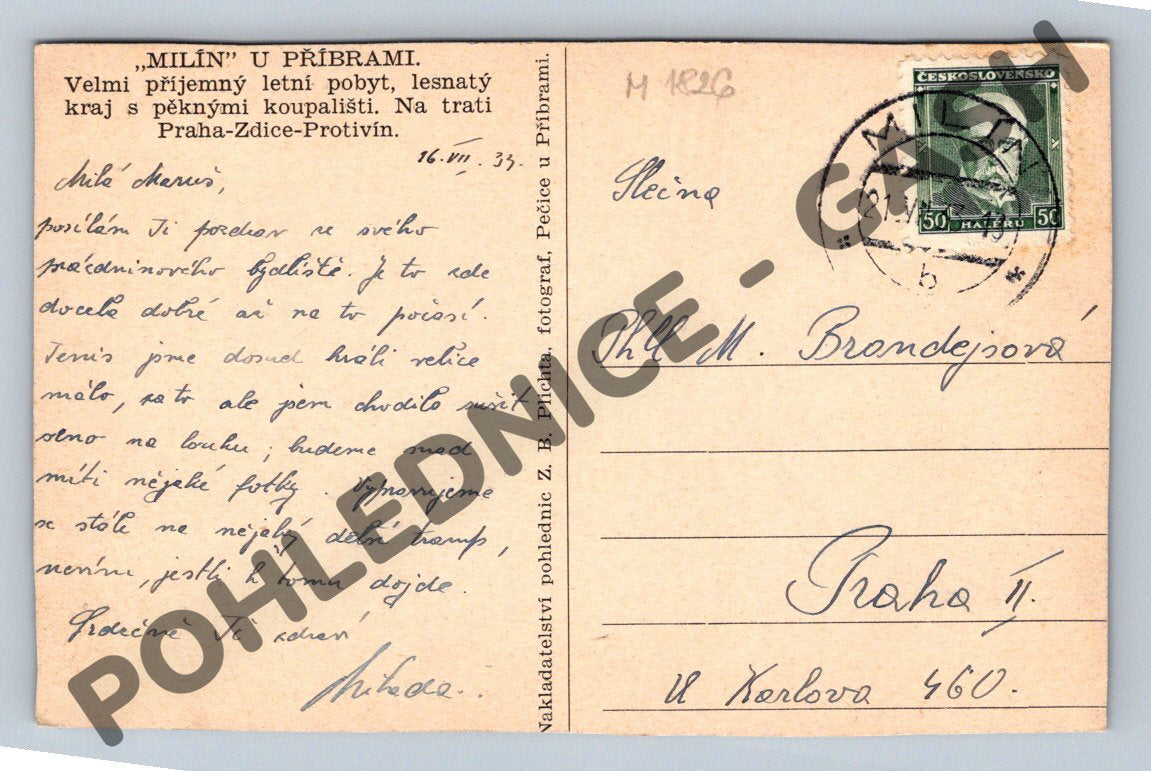 „MILÍN” U PŘÍBRAMI.
Velmi příjemný letní pobyt, lesnatý
kraj s pěknými koupališti. Na trati
Praha-Zdice-Protivín.
16. VII. 33.
Milá Maruš,
posílám Ti pozdrav ze svého
prázdninového bydliště. Je to zde
docela dobré až na to počasí.
Tenis jsme dosud hráli velice
málo, za to ale jsem chodila sušit
seno na louku; budeme snad
míti nějaké fotky. Vypravujeme
se stále na nějaký delší tramp,
nevím, jestli k tomu dojde.
Srdečně Tě zdraví
Milada.
Nakladatelství pohlednic Z. B. Plichta, fotograf, Pečice u Příbrami.
M 1826
ČESKOSLOVENSKO
50 HALÉŘŮ 50
MILÍN
21. 18
b
Slečna
M. Brandejsová
Praha II.
U Karlova 460.
POHLEDNICE - GA